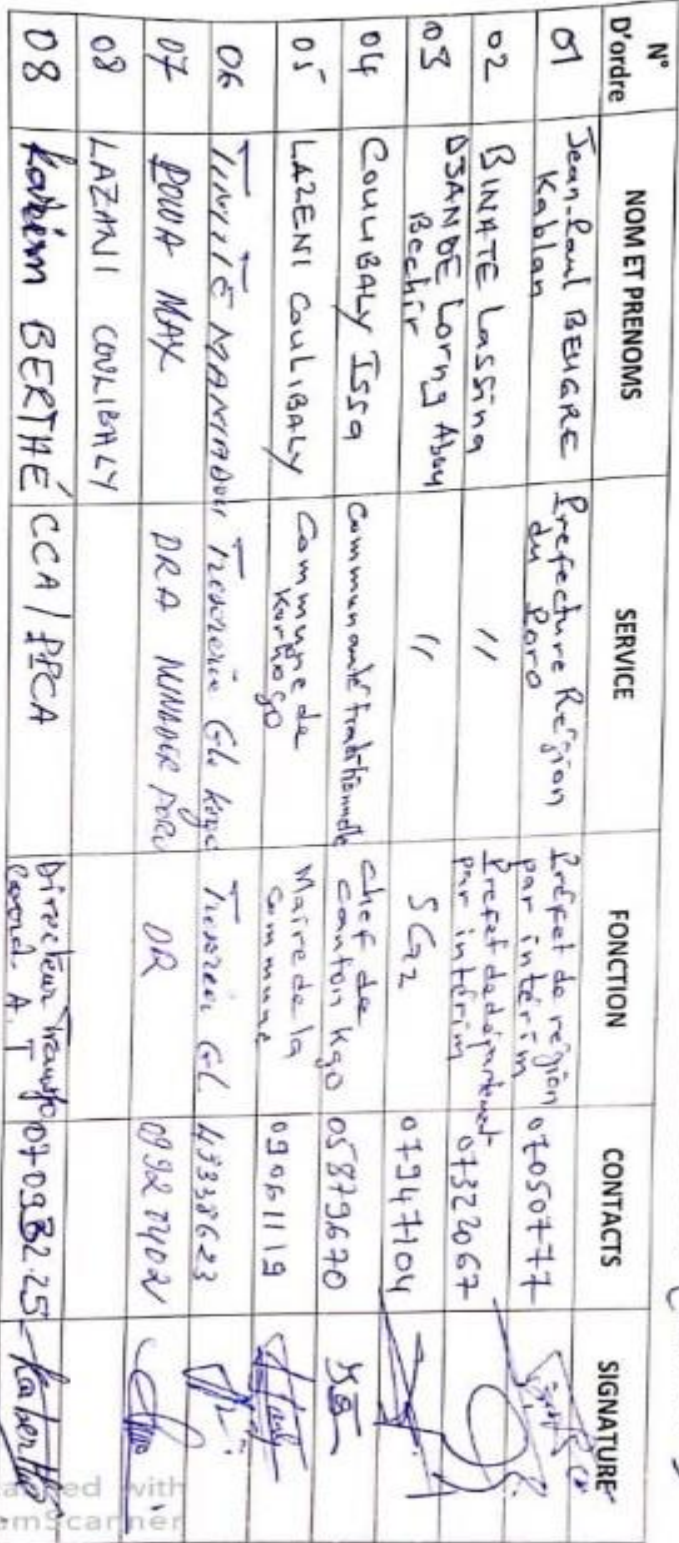 N° D'ordre NOM ET PRENOMS SERVICE FONCTION CONTACTS SIGNATURE
01 Jean-Paul BEUGRE Kablan Prefecture Région du Poro Préfet de région par intérim 07050777
02 BINATE Lassina " Prefet de département par intérim 07322067
03 DJANDE Lorng Abou Bechir " SG2 07947104
04 COULIBALY Issa Communauté traditionnelle Chef de canton kgo 05879670
05 LAZENI COULIBALY Commune de Korhogo Maire de la commune 09061119
06 TIMITÉ MAMADOU Trésorerie Gle Trésorier GL
07 MAX DRA DR
08 LAZANI COULIBALY
08 Karim BERTHÉ CCA/ Directeur coord. A.T